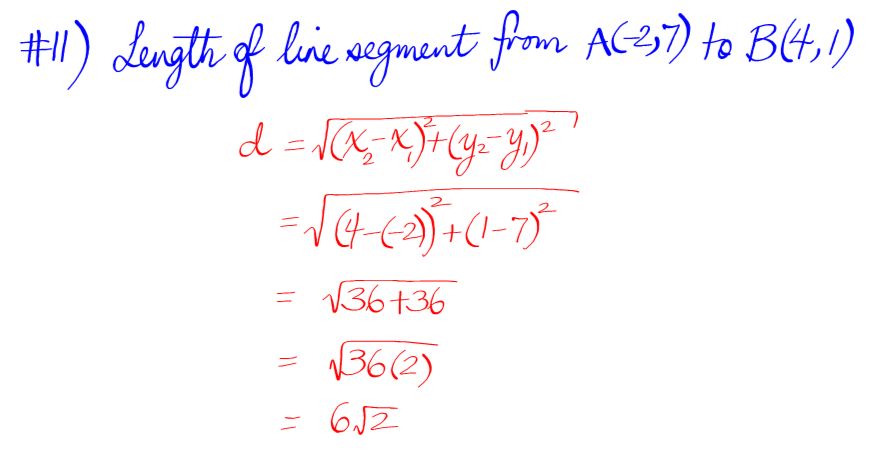 #11) Length of line segment from A(-2,7) to B(4,1)
d = √((x₂-x₁)²+(y₂-y₁)²)
= √((4-(-2))²+(1-7)²)
= √(36+36)
= √(36(2))
= 6√2